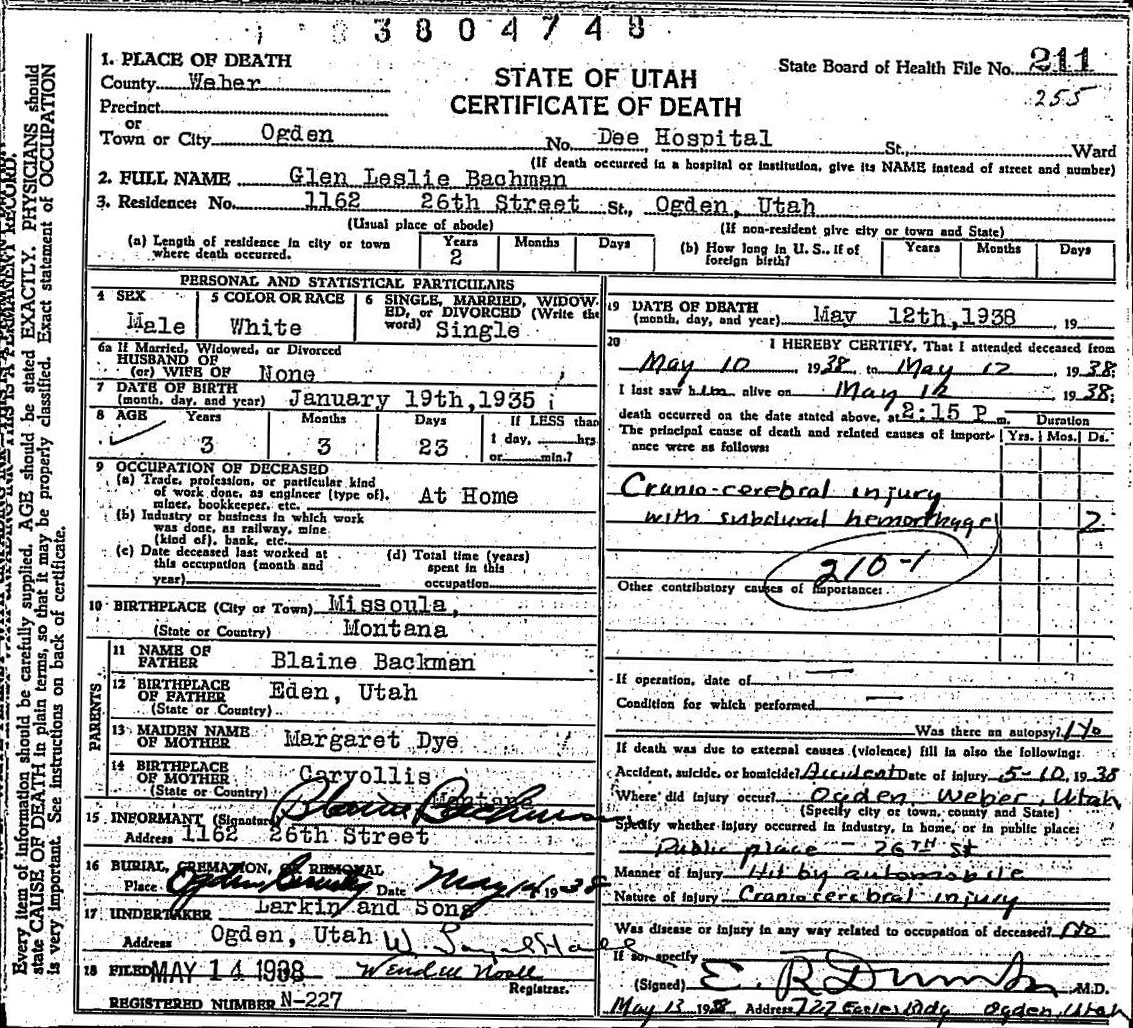 3804748
1. PLACE OF DEATH
County Weber
Precinct
or
Town or City Ogden
STATE OF UTAH
CERTIFICATE OF DEATH
State Board of Health File No. 211
255
No. Dee Hospital St., Ward
(If death occurred in a hospital or institution, give its NAME instead of street and number)
2. FULL NAME Glen Leslie Bachman
3. Residence: No. 1162 26th Street St., Ogden, Utah
(Usual place of abode) (If non-resident give city or town and State)
(a) Length of residence in city or town where death occurred. Years 2 Months Days
(b) How long in U. S., if of foreign birth? Years Months Days
PERSONAL AND STATISTICAL PARTICULARS
4 SEX Male
5 COLOR OR RACE White
6 SINGLE, MARRIED, WIDOWED, or DIVORCED (Write the word) Single
6a If Married, Widowed, or Divorced
HUSBAND OF
(or) WIFE OF None
7 DATE OF BIRTH
(month, day, and year) January 19th, 1935
8 AGE Years 3 Months 3 Days 23 If LESS than 1 day, hrs or min.?
9 OCCUPATION OF DECEASED
(a) Trade, profession, or particular kind of work done, as engineer (type of), miner, bookkeeper, etc. At Home
(b) Industry or business in which work was done, as railway, mine (kind of), bank, etc.
(c) Date deceased last worked at this occupation (month and year)
(d) Total time (years) spent in this occupation
10 BIRTHPLACE (City or Town) Missoula,
(State or Country) Montana
PARENTS
11 NAME OF FATHER Blaine Backman
12 BIRTHPLACE OF FATHER Eden, Utah
(State or Country)
13 MAIDEN NAME OF MOTHER Margaret Dye
14 BIRTHPLACE OF MOTHER Caryollis
(State or Country) Montana
15 INFORMANT (Signature) Blaine Bachman
Address 1162 26th Street
16 BURIAL, CREMATION, OR REMOVAL
Place Ogden Date May 14 1938
17 UNDERTAKER Larkin and Sons
Address Ogden, Utah
18 FILED MAY 14 1938
Registrar.
REGISTERED NUMBER N-227
19 DATE OF DEATH
(month, day, and year) May 12th, 1938 , 19
20 I HEREBY CERTIFY, That I attended deceased from
May 10 1938, to May 12, 1938;
I last saw him alive on May 12 1938;
death occurred on the date stated above, at 2:15 P m.
The principal cause of death and related causes of importance were as follows:
Duration
Yrs. Mos. Ds.
Cranio-cerebral injury
with subdural hemorrhage 2
210-1
Other contributory causes of importance:
If operation, date of —
Condition for which performed —
Was there an autopsy? No
If death was due to external causes (violence) fill in also the following:
Accident, suicide, or homicide? Accident Date of injury 5-10, 1938
Where did injury occur? Ogden, Weber, Utah
(Specify city or town, county and State)
Specify whether injury occurred in industry, in home, or in public place:
Public place - 26TH St
Manner of injury Hit by automobile
Nature of injury Cranio cerebral injury
Was disease or injury in any way related to occupation of deceased? No
If so, specify
(Signed) E. R. Dumke M.D.
May 13 1938 Address 727 Eccles Bldg Ogden, Utah
Every item of information should be carefully supplied. AGE should be stated EXACTLY. PHYSICIANS should
state CAUSE OF DEATH in plain terms, so that it may be properly classified. Exact statement of OCCUPATION
is very important. See instructions on back of certificate.